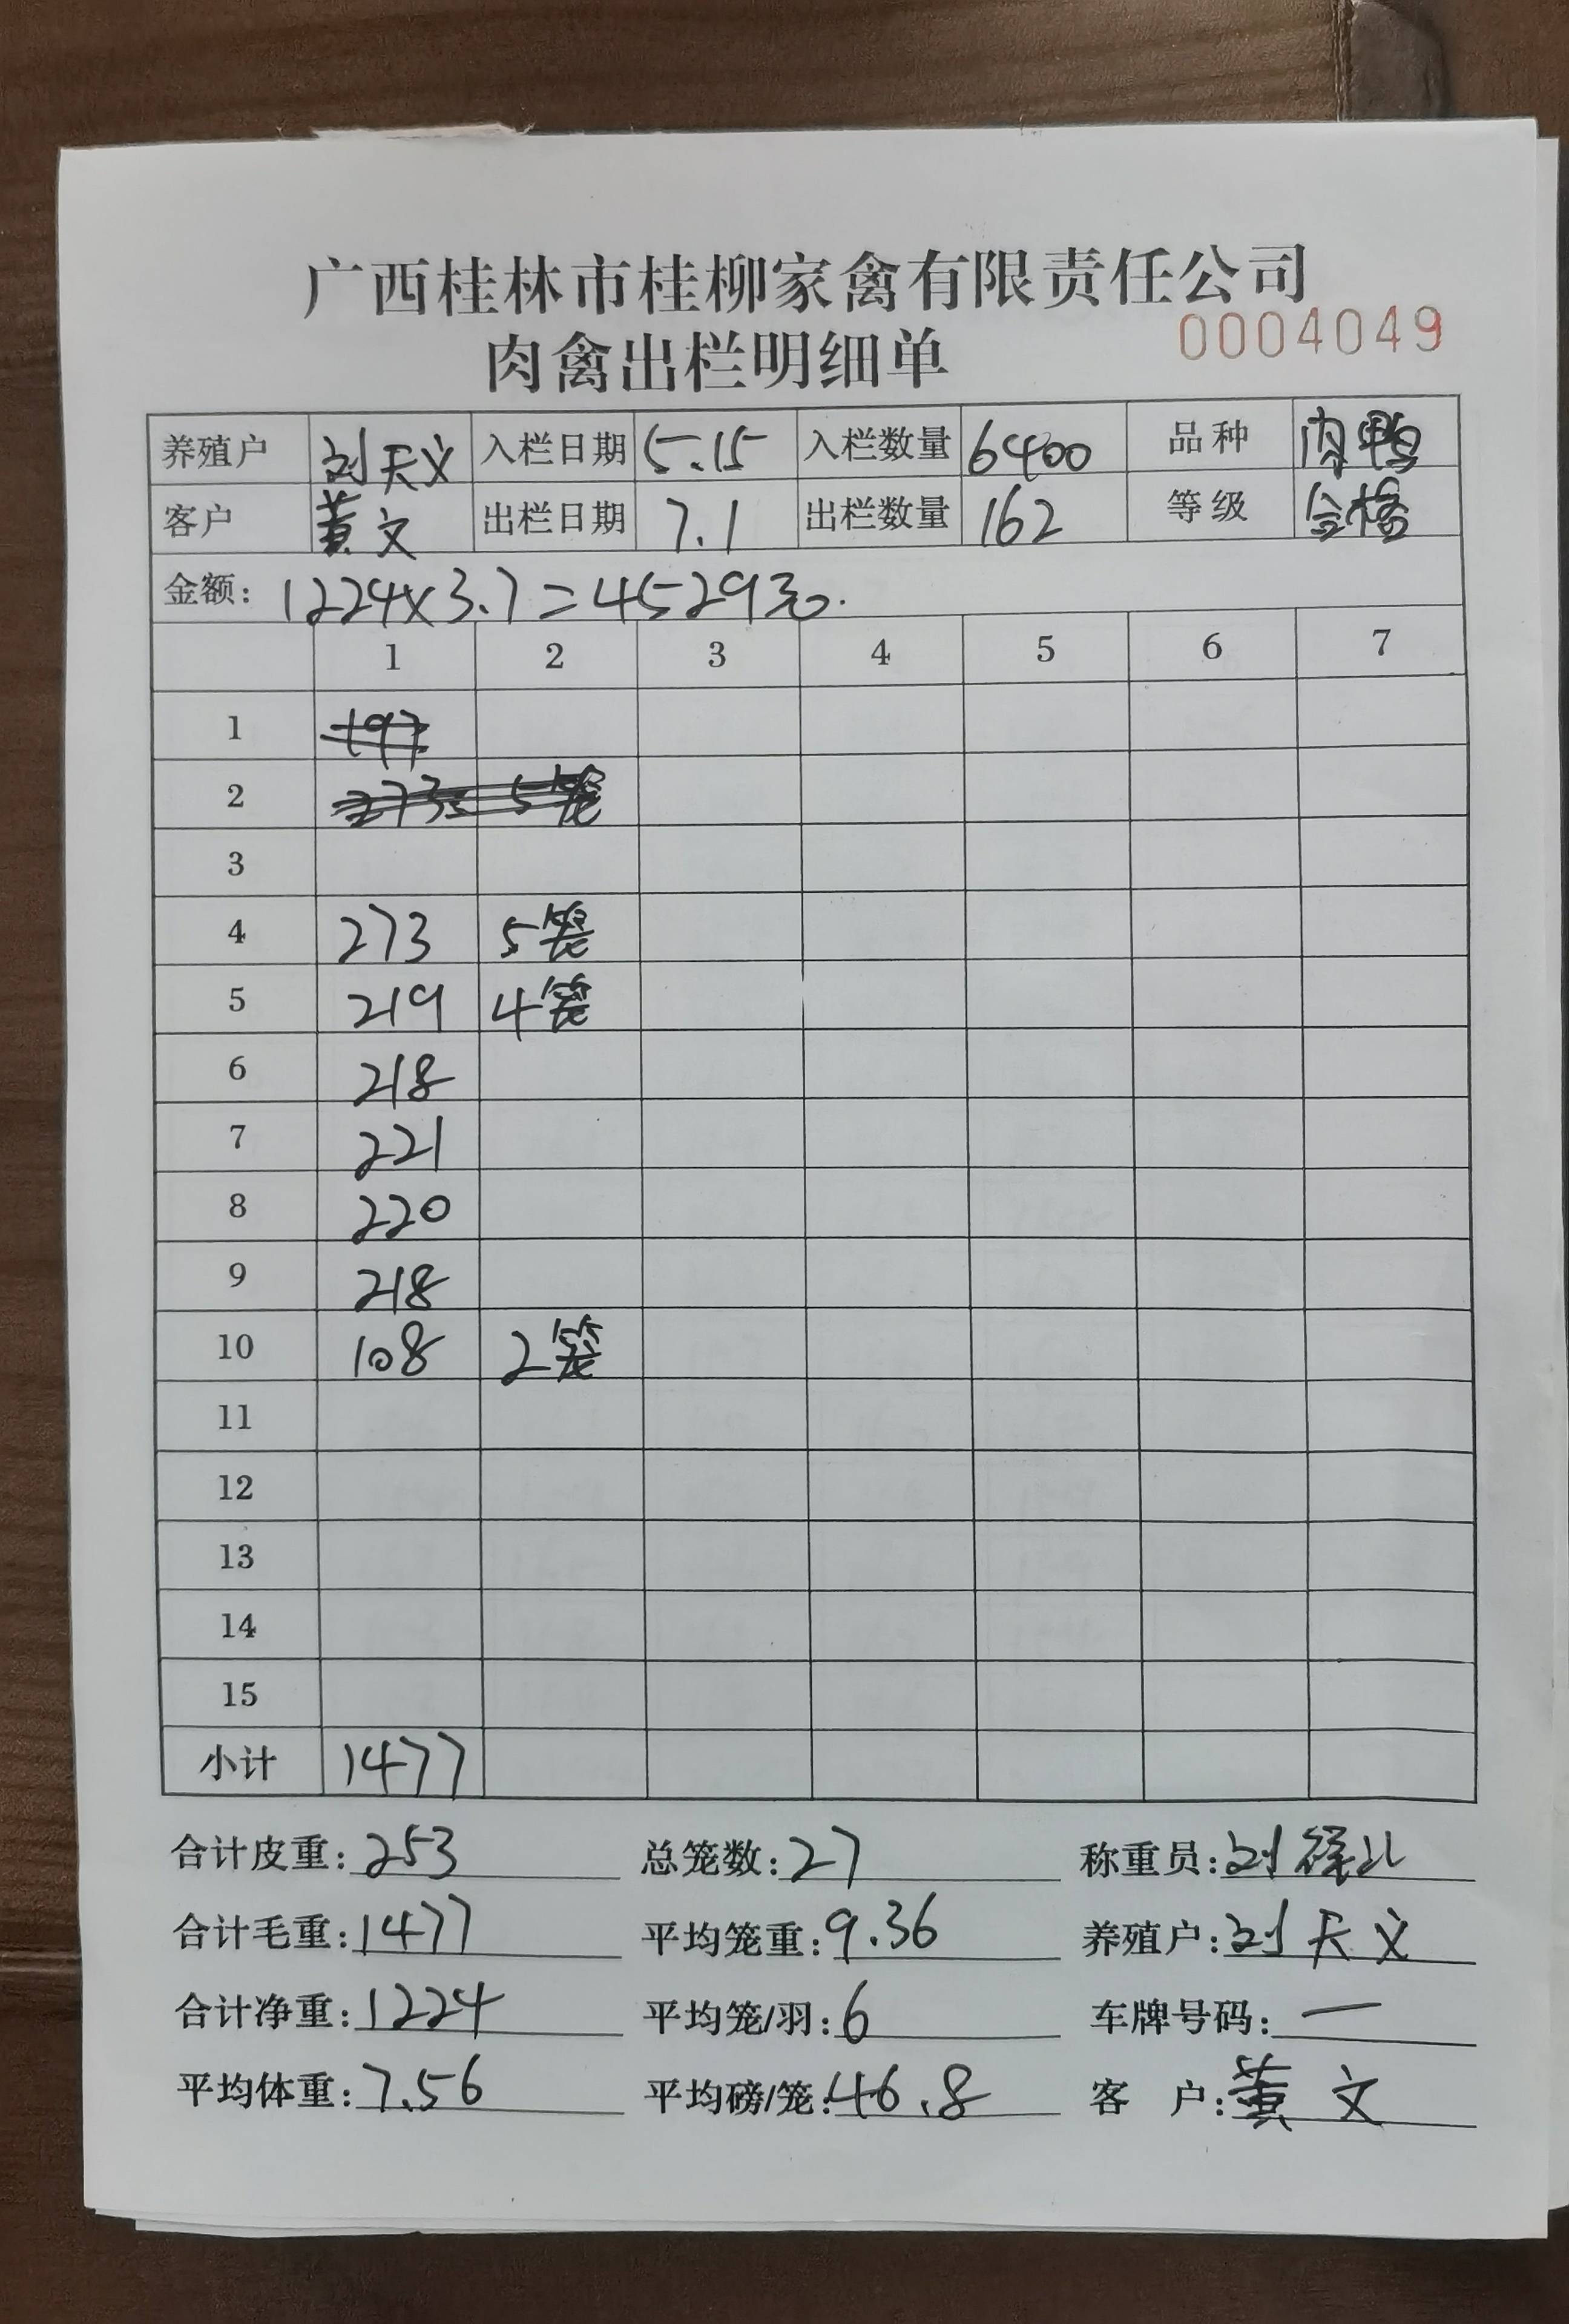 广西桂林市桂柳家禽有限责任公司
肉禽出栏明细单 0004049
养殖户 刘天义 入栏日期 5.15 入栏数量 6400 品种 肉鸭
客户 黄文 出栏日期 7.1 出栏数量 162 等级 合格
金额: 1224×3.7=4529元.
1 2 3 4 5 6 7
1 197
2 273 5笼
3
4 273 5笼
5 219 4笼
6 218
7 221
8 220
9 218
10 108 2笼
11
12
13
14
15
小计 1477
合计皮重: 253 总笼数: 27 称重员: 刘
合计毛重: 1477 平均笼重: 9.36 养殖户: 刘天义
合计净重: 1224 平均笼/羽: 6 车牌号码: 一
平均体重: 7.56 平均磅/笼: 46.8 客户: 黄文